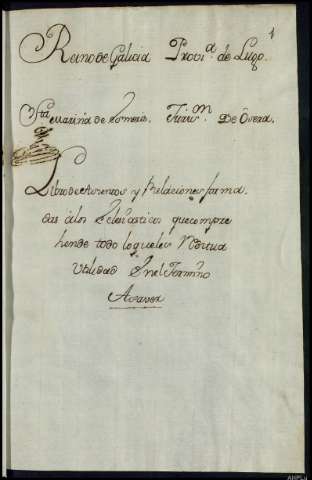 1
Reino de Galicia Provi.ª de Lugo.
Sta Marina de Jurisⁿ De Osera.
Libro de Asientos y Relaciones forma
das a los Eclesiasticos que compre
hende todo lo que les
Utilidad En el Termino
A saver
AHPLU